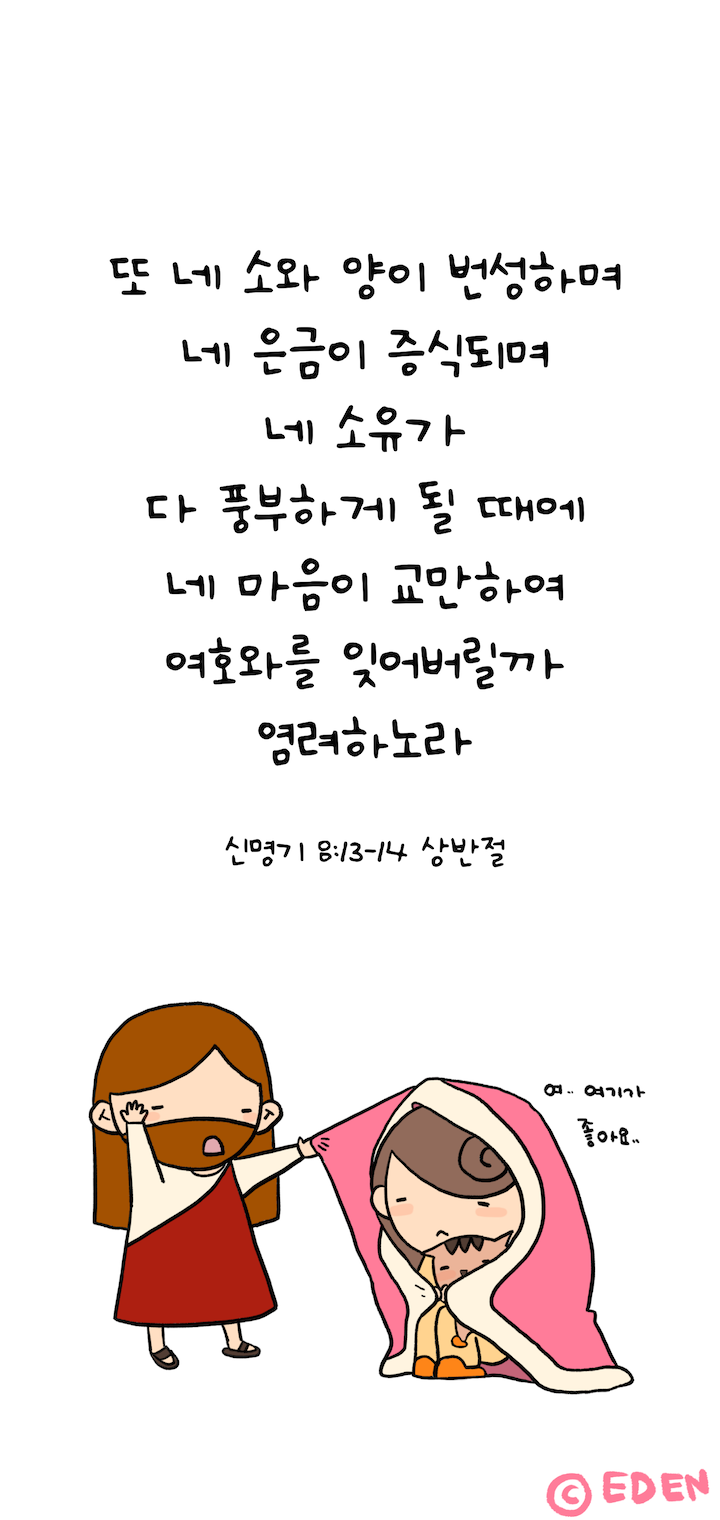 또 네 소와 양이 번성하며
네 은금이 증식되며
네 소유가
다 풍부하게 될 때에
네 마음이 교만하여
여호와를 잊어버릴까
염려하노라
신명기 8:13-14 상반절
여.. 여기가
좋아요..
© EDEN